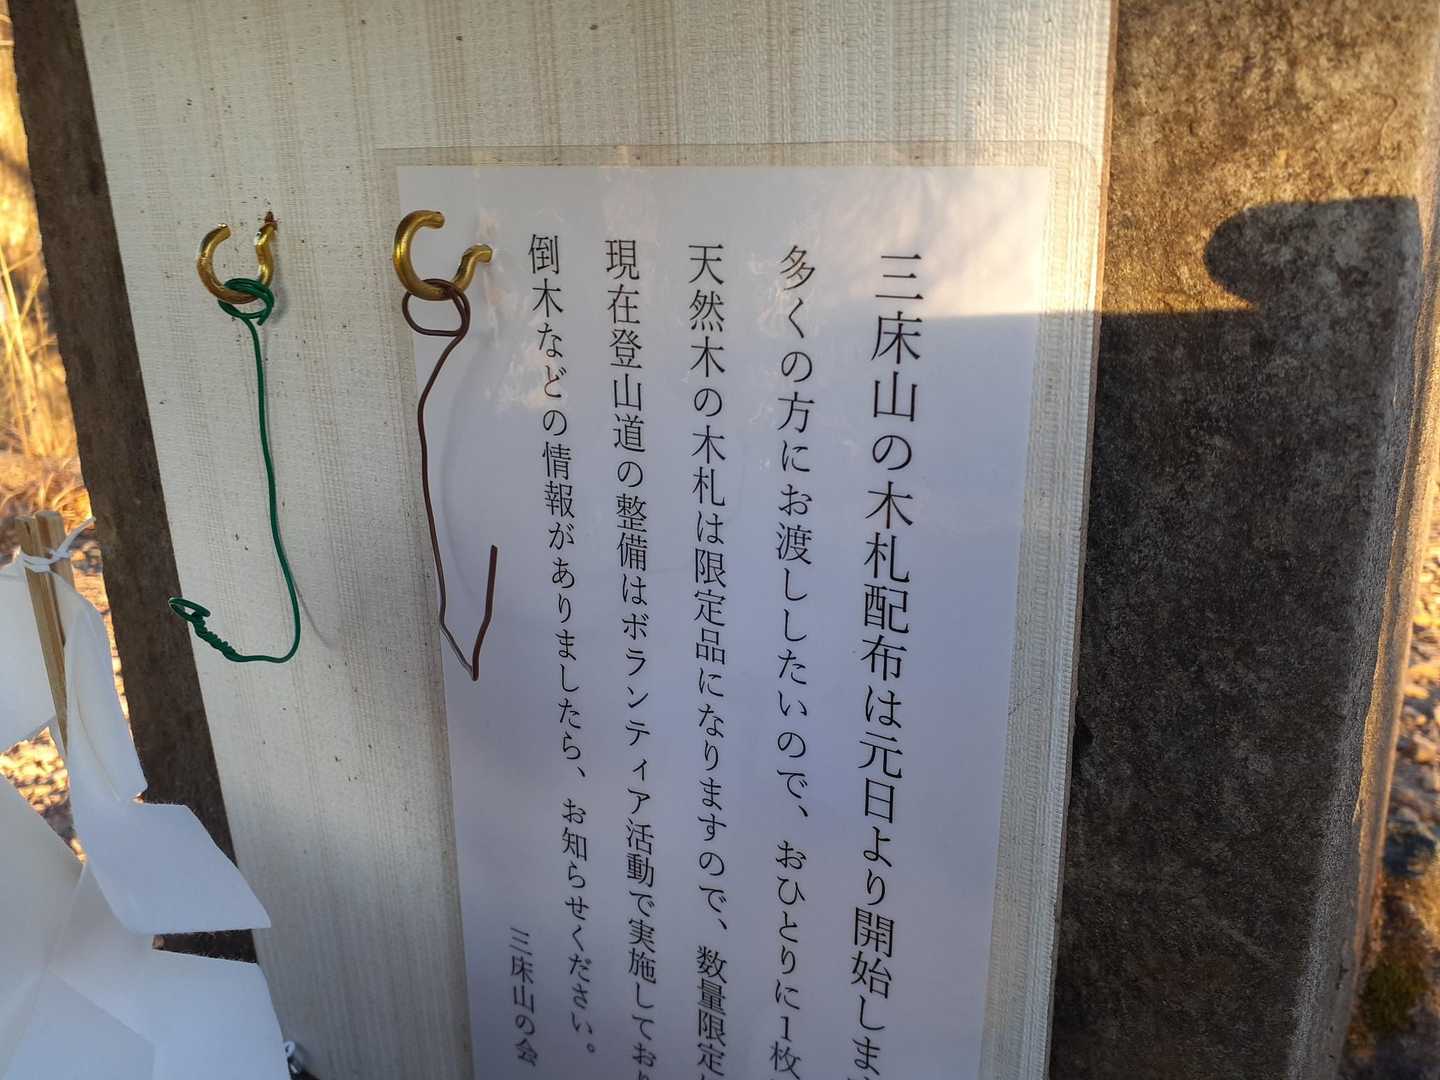 三床山の木札配布は元日より開始しま
多くの方にお渡ししたいので、おひとりに1枚
天然木の木札は限定品になりますので、数量限定
現在登山道の整備はボランティア活動で実施してお
倒木などの情報がありましたら、お知らせください。
三床山の会